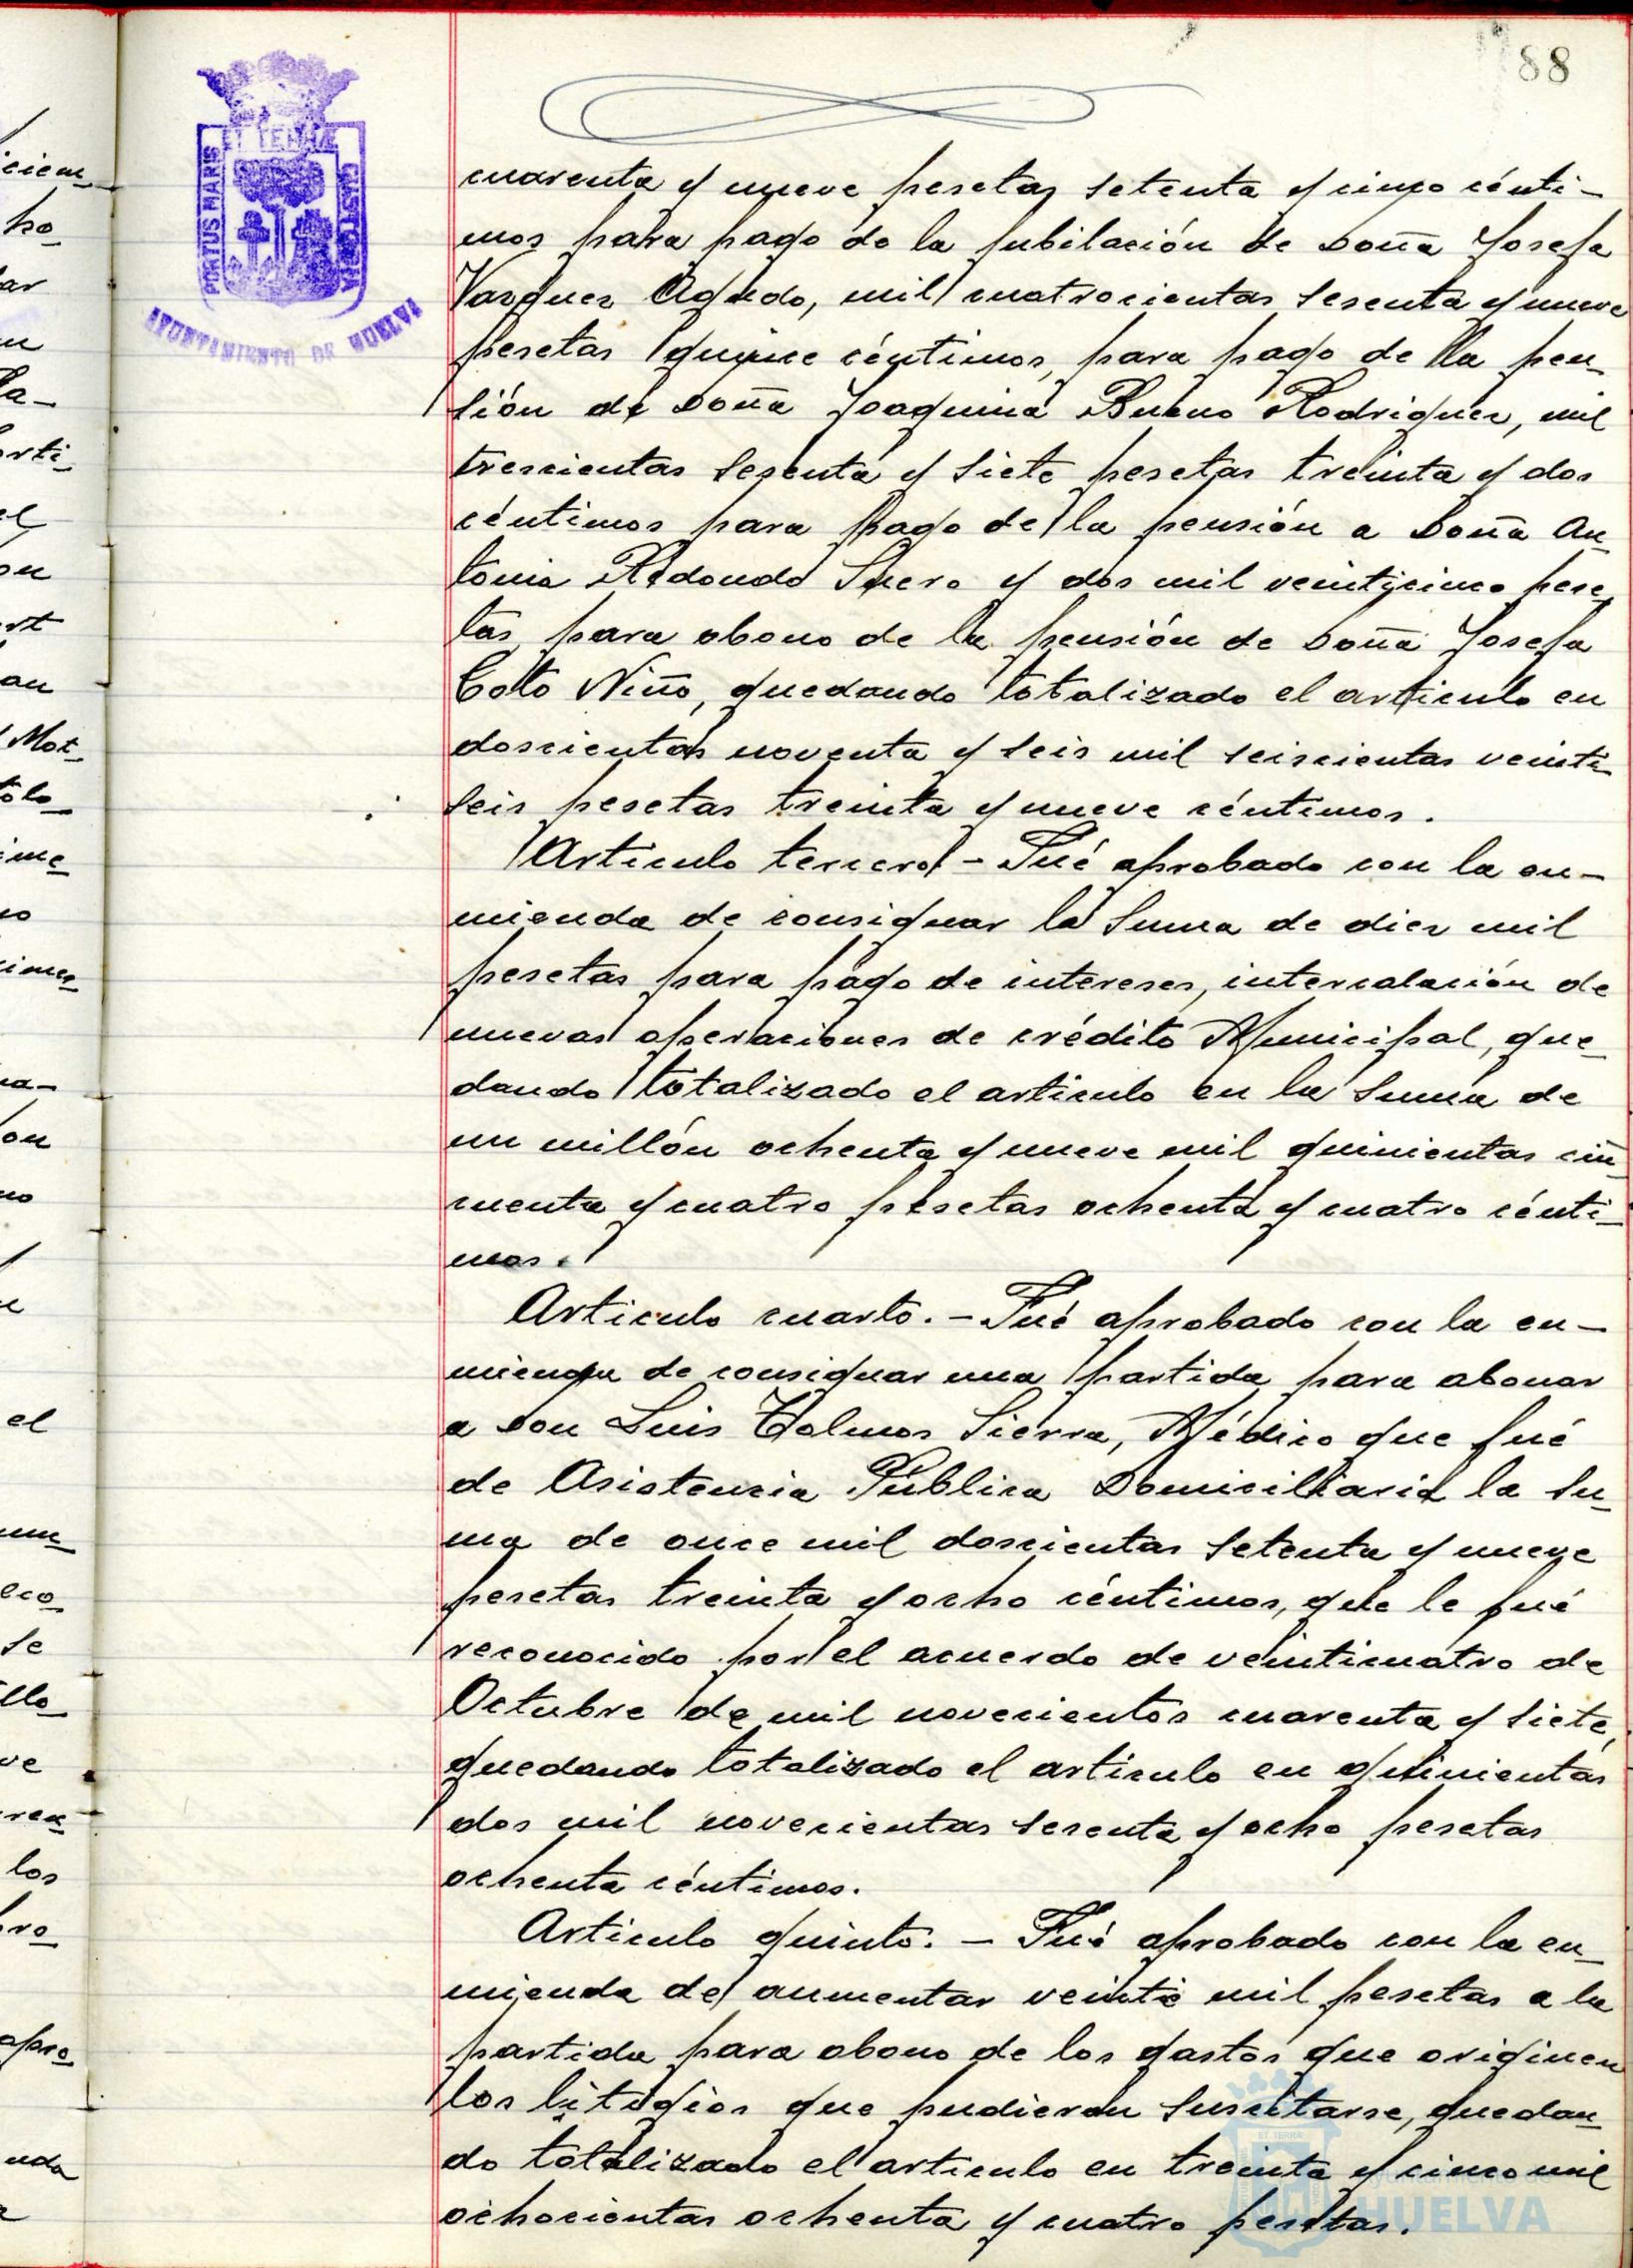 88
PORTUS MARIS
ET TERRÆ
CUSTODIA
AYUNTAMIENTO DE HUELVA
cuarenta y nueve pesetas setenta y cinco cénti-
mos para pago de la jubilación de Doña Josefa
Vazquez Agudo, mil cuatrocientas sesenta y nueve
pesetas quince céntimos, para pago de la pen-
sión de Doña Joaquina Bueno Rodriguez, mil
trescientas sesenta y siete pesetas treinta y dos
céntimos para pago de la pensión a Doña An-
tonia Redondo Suero y dos mil veinticinco pese-
tas para abono de la pensión de Doña Josefa
Coto Niño, quedando totalizado el articulo en
doscientas noventa y seis mil seiscientas veinti-
seis pesetas treinta y nueve céntimos.
Articulo tercero - Fué aprobado con la en-
mienda de consignar la suma de diez mil
pesetas para pago de intereses, intercalación de
nuevas operaciones de crédito Municipal, que-
dando totalizado el articulo en la suma de
un millón ochenta y nueve mil quinientas cin-
cuenta y cuatro pesetas ochenta y cuatro cénti-
mos.
Articulo cuarto. - Fué aprobado con la en-
mienda de consignar una partida para abonar
a Don Luis Sierra, Médico que fué
de Asistencia Pública Domiciliaria la su-
ma de once mil doscientas setenta y nueve
pesetas treinta y ocho céntimos, que le fué
reconocido por el acuerdo de veinticuatro de
Octubre de mil novecientos cuarenta y siete,
quedando totalizado el articulo en quinientas
dos mil novecientas sesenta y ocho pesetas
ochenta céntimos.
Articulo quinto. - Fué aprobado con la en-
mienda de aumentar veinte mil pesetas a la
partida para abono de los gastos que originen
los litigios que pudieran suscitarse, quedan-
do totalizado el articulo en treinta y cinco mil
ochocientas ochenta y cuatro pesetas.
HUELVA